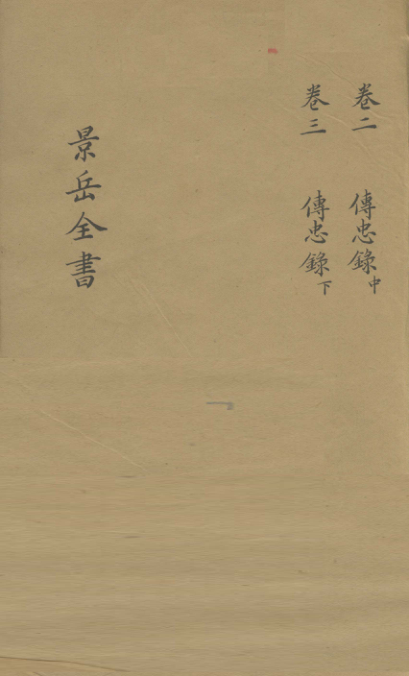 卷二 傳忠錄中
卷三 傳忠錄下
景岳全書